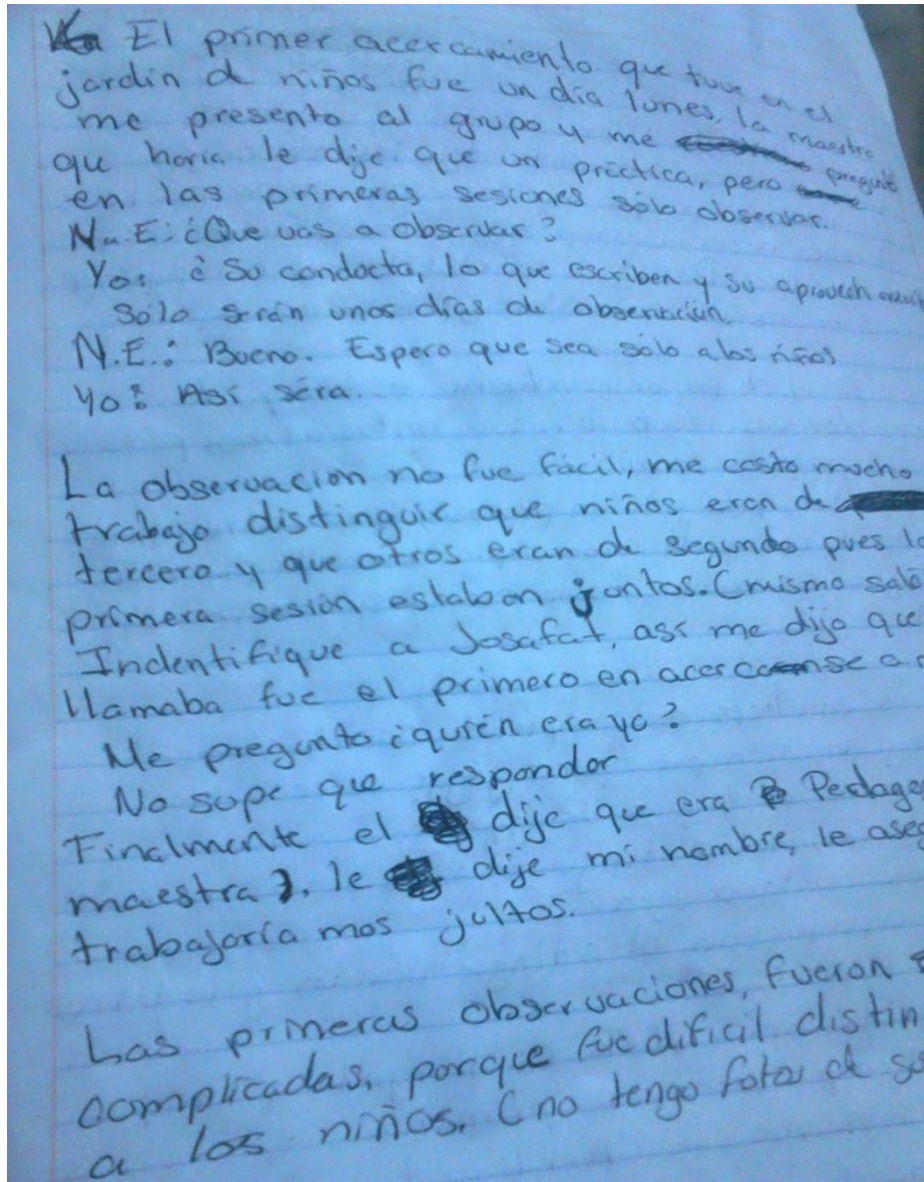 El primer acercamiento que tuve en el
jardín de niños fue un día lunes, la maestra
me presento al grupo y me pregunto
que haría le dije que un práctica, pero
en las primeras sesiones sólo observar.
N.E: ¿Que vas a observar?
Yo: ¿Su conducta, lo que escriben y su aprovech
Sólo serán unos días de observación.
N.E.: Bueno. Espero que sea sólo a los niños
Yo: Así séra.
La observación no fue fácil, me costo mucho
trabajo distinguir que niños eran de
tercero y que otros eran de segundo pues la
primera sesión estaban juntos. (mismo saló
Indentifique a Josafat, así me dijo que
llamaba fue el primero en acercarse a
Me pregunto ¿quién era yo?
No supe que responder
Finalmente el dije que era Pedago
maestra), le dije mi nombre, le ase
trabajaría mos jultos.
Las primeras observaciones, fueron
complicadas, porque fue dificil distin
a los niños. (no tengo fotos de